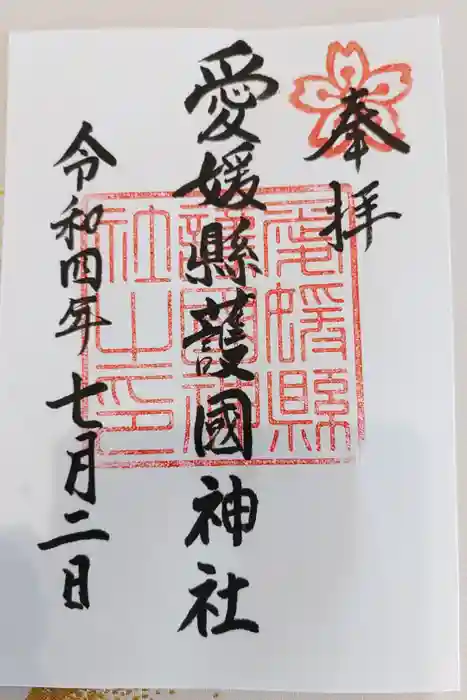 奉拝
愛媛縣護國神社
愛媛縣護國神社之印
令和四年七月二日